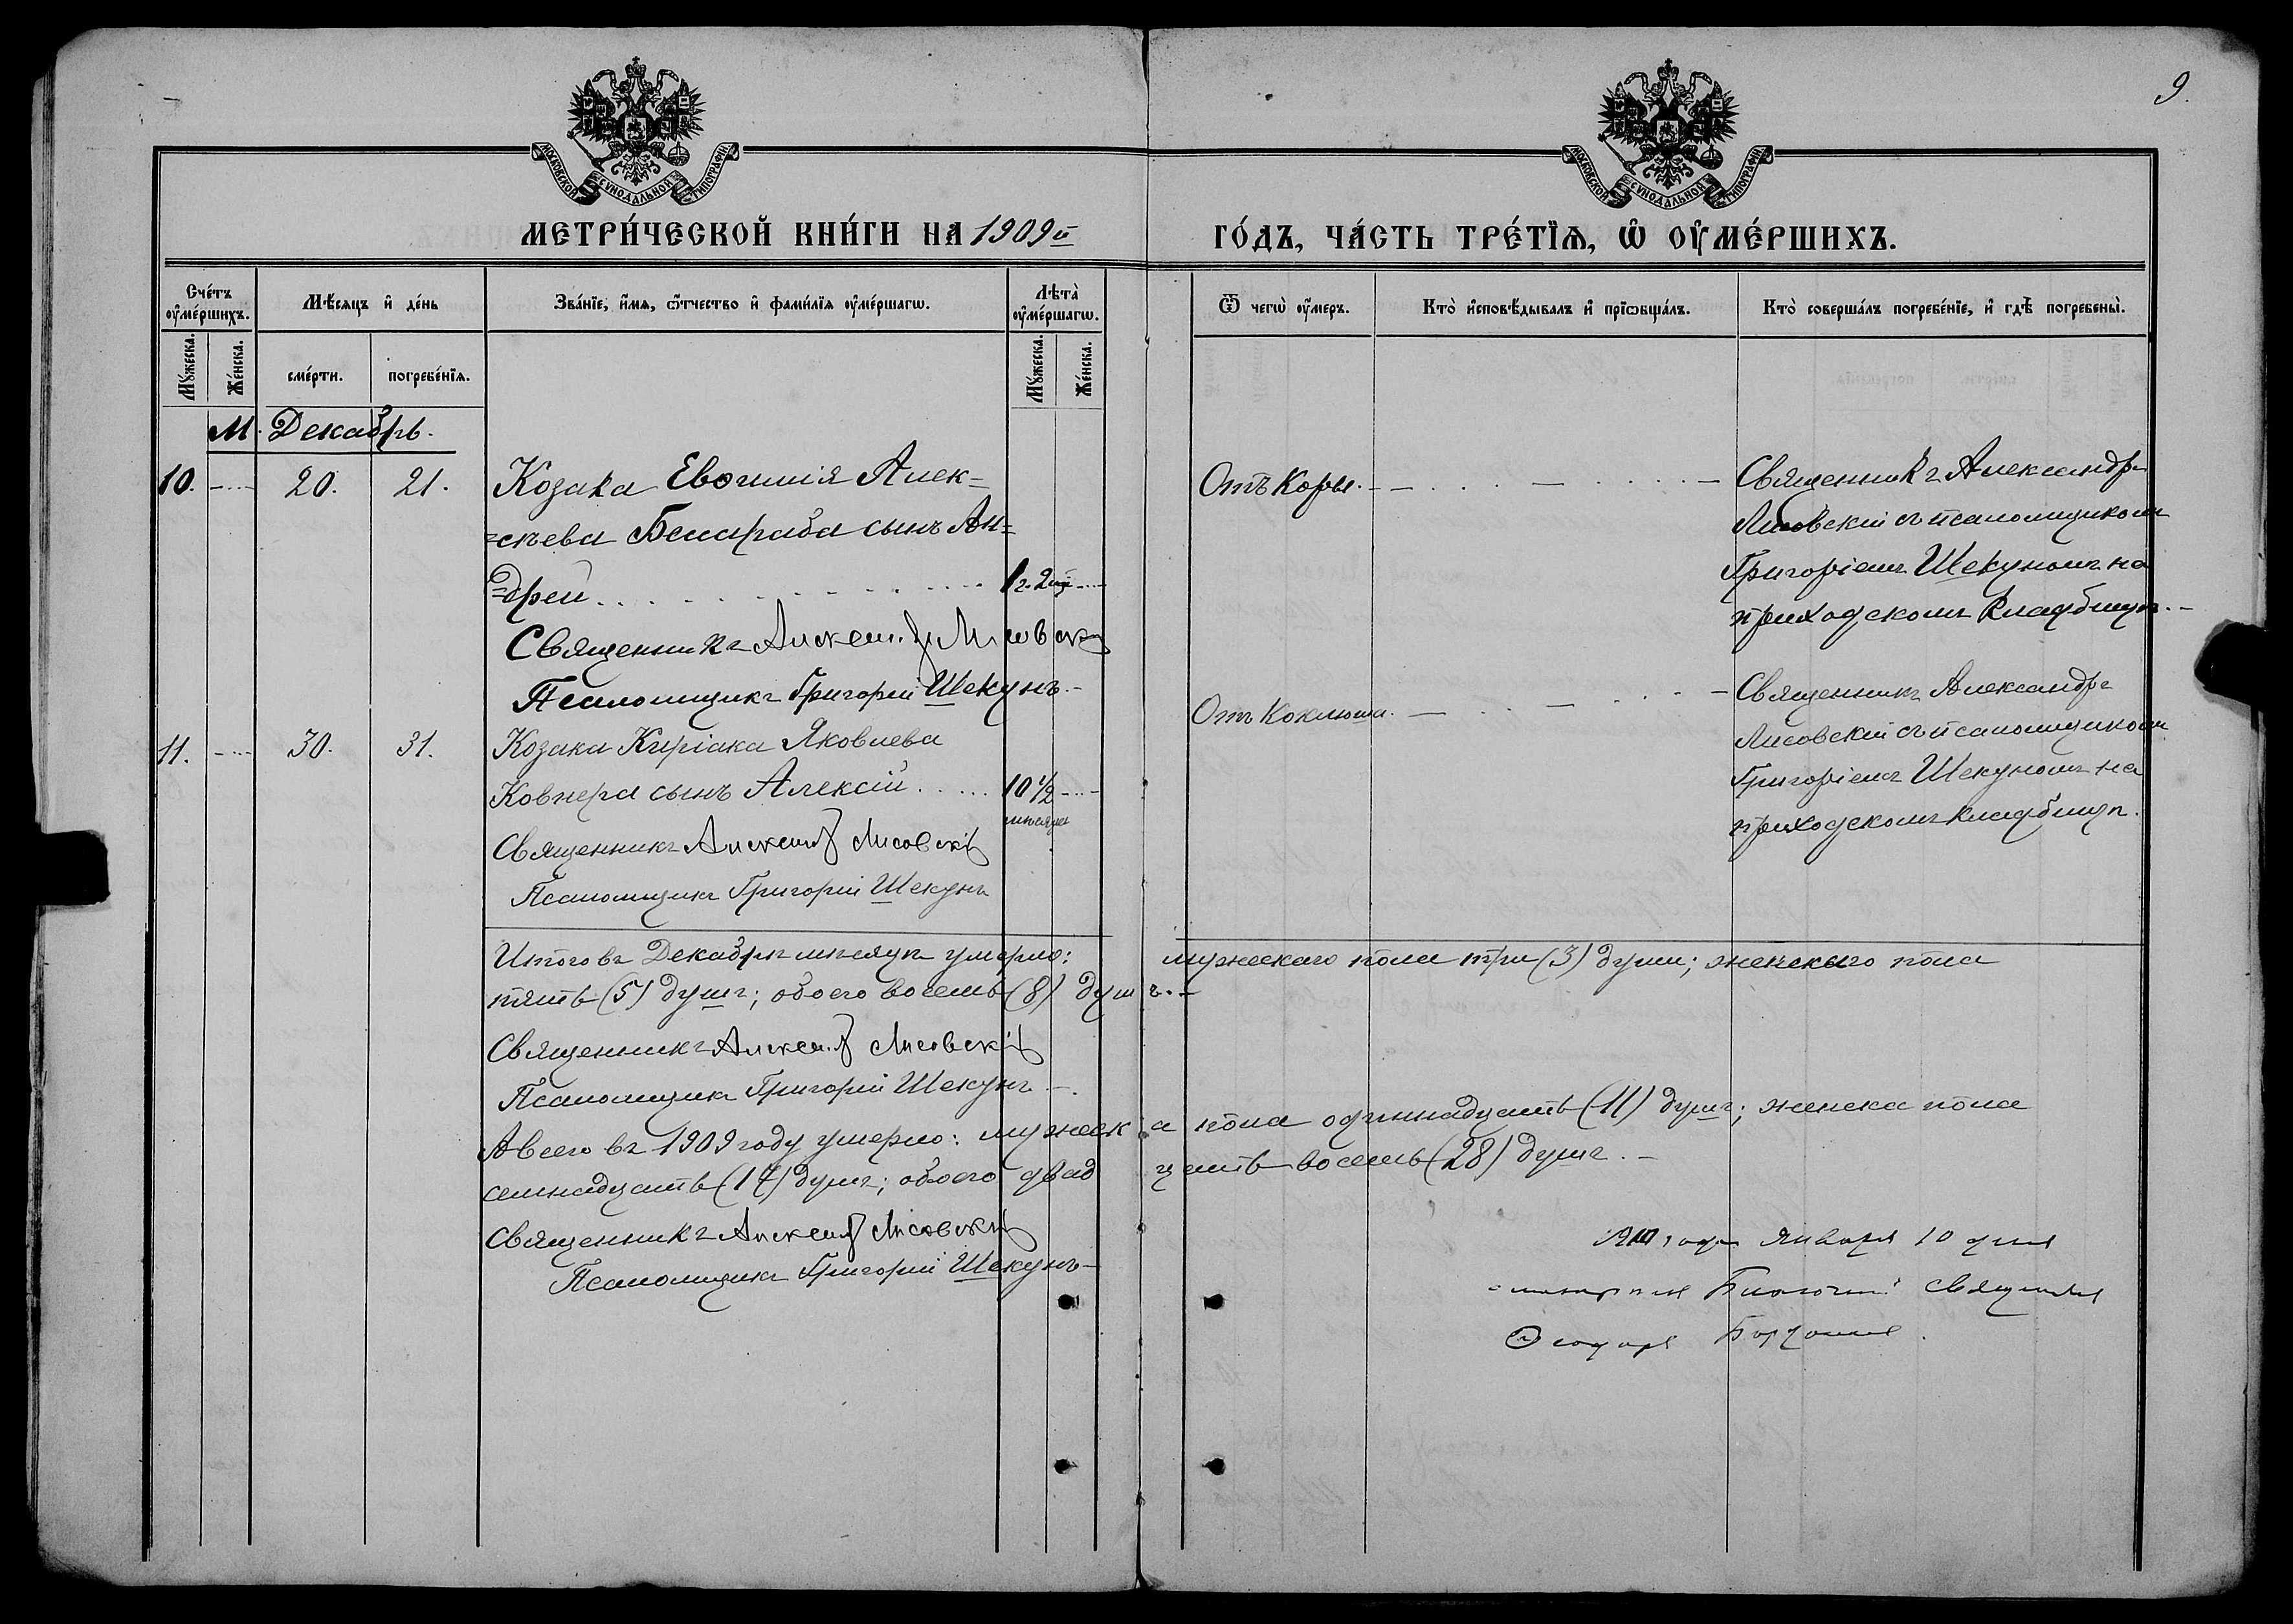 9.
МОСКОВСКОЙ СѴНОДАЛЬНОЙ ТИПОГРАФІИ
МОСКОВСКОЙ СѴНОДАЛЬНОЙ ТИПОГРАФІИ
МЕТРИ́ЧЕСКОЙ КНИ́ГИ НА 1909й ГО́ДЪ, ЧА́СТЬ ТРЕ́ТЇѦ, Ѡ҆ ОУ҆МЕ́РШИХЪ.
Счетъ оу҆ме́ршихъ.
Мꙋ́жеска. Же́нска.
Мѣ́сяцъ и҆ де́нь
сме́рти. погребе́нїѧ.
Зва́нїе, и҆́мѧ, ѻ҆́тчество и҆ фами́лїѧ оу҆ме́ршагѡ.
Лѣта̀ оу҆ме́ршагѡ.
Мꙋ́жеска. Же́нска.
Ѿ чегѡ̀ оу҆́меръ.
Кто̀ и҆сповѣ́дывалъ и҆ прїѡбща́лъ.
Кто̀ соверша́лъ погребе́нїе, и҆ гдѣ̀ погребены̀.
М. Декабрь.
10. 20. 21. Козака Алек=
=сѣева сынъ Ан=
=дрей 1 г. 2
Священникъ
Псаломщикъ Григорій Шекунъ.
Отъ Коры.
Священникъ Александръ
Лисовскій съ псаломщикомъ
Григоріемъ Шекуномъ на
приходскомъ кладбищѣ.
11. 30. 31. Козака Киріака Яковлева
Ковнера сынъ Алексій 10 1/2
мѣсяцев
Священникъ Александръ Лисовскій
Псаломщикъ Григорій Шекунъ
Отъ Коклюша.
Священникъ Александръ
Лисовскій съ псаломщикомъ
Григоріемъ Шекуномъ на
приходскомъ кладбищѣ.
Итого въ Декабрѣ мѣсяцѣ умерло: мужескаго пола три (3) души; женскаго пола
пять (5) душъ; обоего восемь (8) душъ.
Священникъ Александръ Лисовскій
Псаломщикъ Григорій Шекунъ
А всего въ 1909 году умерло: мужеска пола одиннадцать (11) душъ; женска пола
семнадцать (17) душъ; обоего двадцать восемь (28) душъ.
Священникъ Александръ Лисовскій
Псаломщикъ Григорій Шекунъ
1910 года Января 10 дня